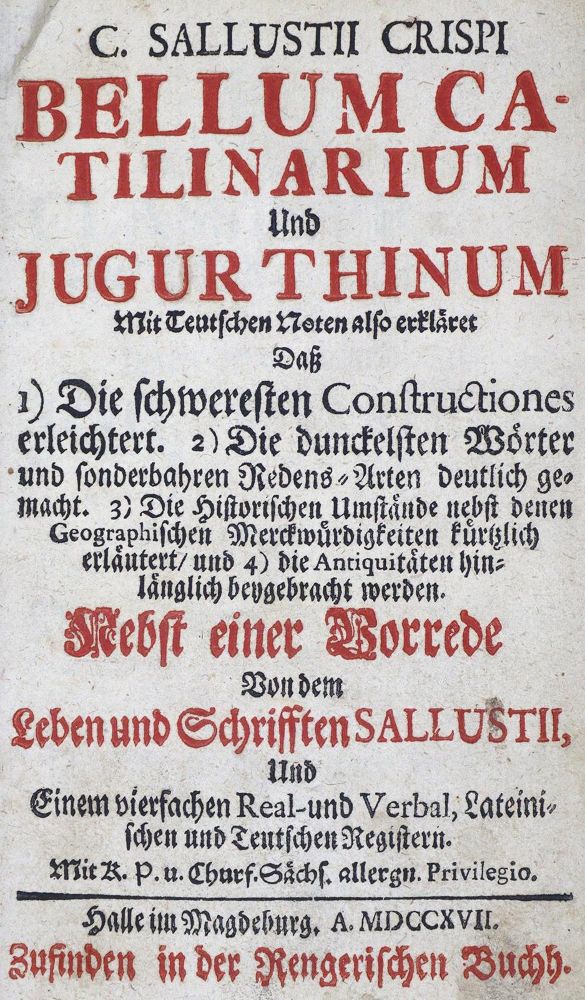 C. SALLUSTII CRISPI
BELLUM CA-
TILINARIUM
Und
JUGURTHINUM
Mit Teutschen Noten also erkläret
Daß
1) Die schweresten Constructiones
erleichtert. 2) Die dunckelsten Wörter
und sonderbahren Redens-Arten deutlich ge-
macht. 3) Die Historischen Umstände nebst denen
Geographischen Merckwürdigkeiten kürtzlich
erläutert/ und 4) die Antiquitäten hin-
länglich beygebracht werden.
Nebst einer Vorrede
Von dem
Leben und Schrifften SALLUSTII,
Und
Einem vierfachen Real-und Verbal, Lateini-
schen und Teutschen Registern.
Mit K. P. u. Churf. Sächs. allergn. Privilegio.
Halle im Magdeburg. A. MDCCXVII.
Zufinden in der Rengerischen Buchh.